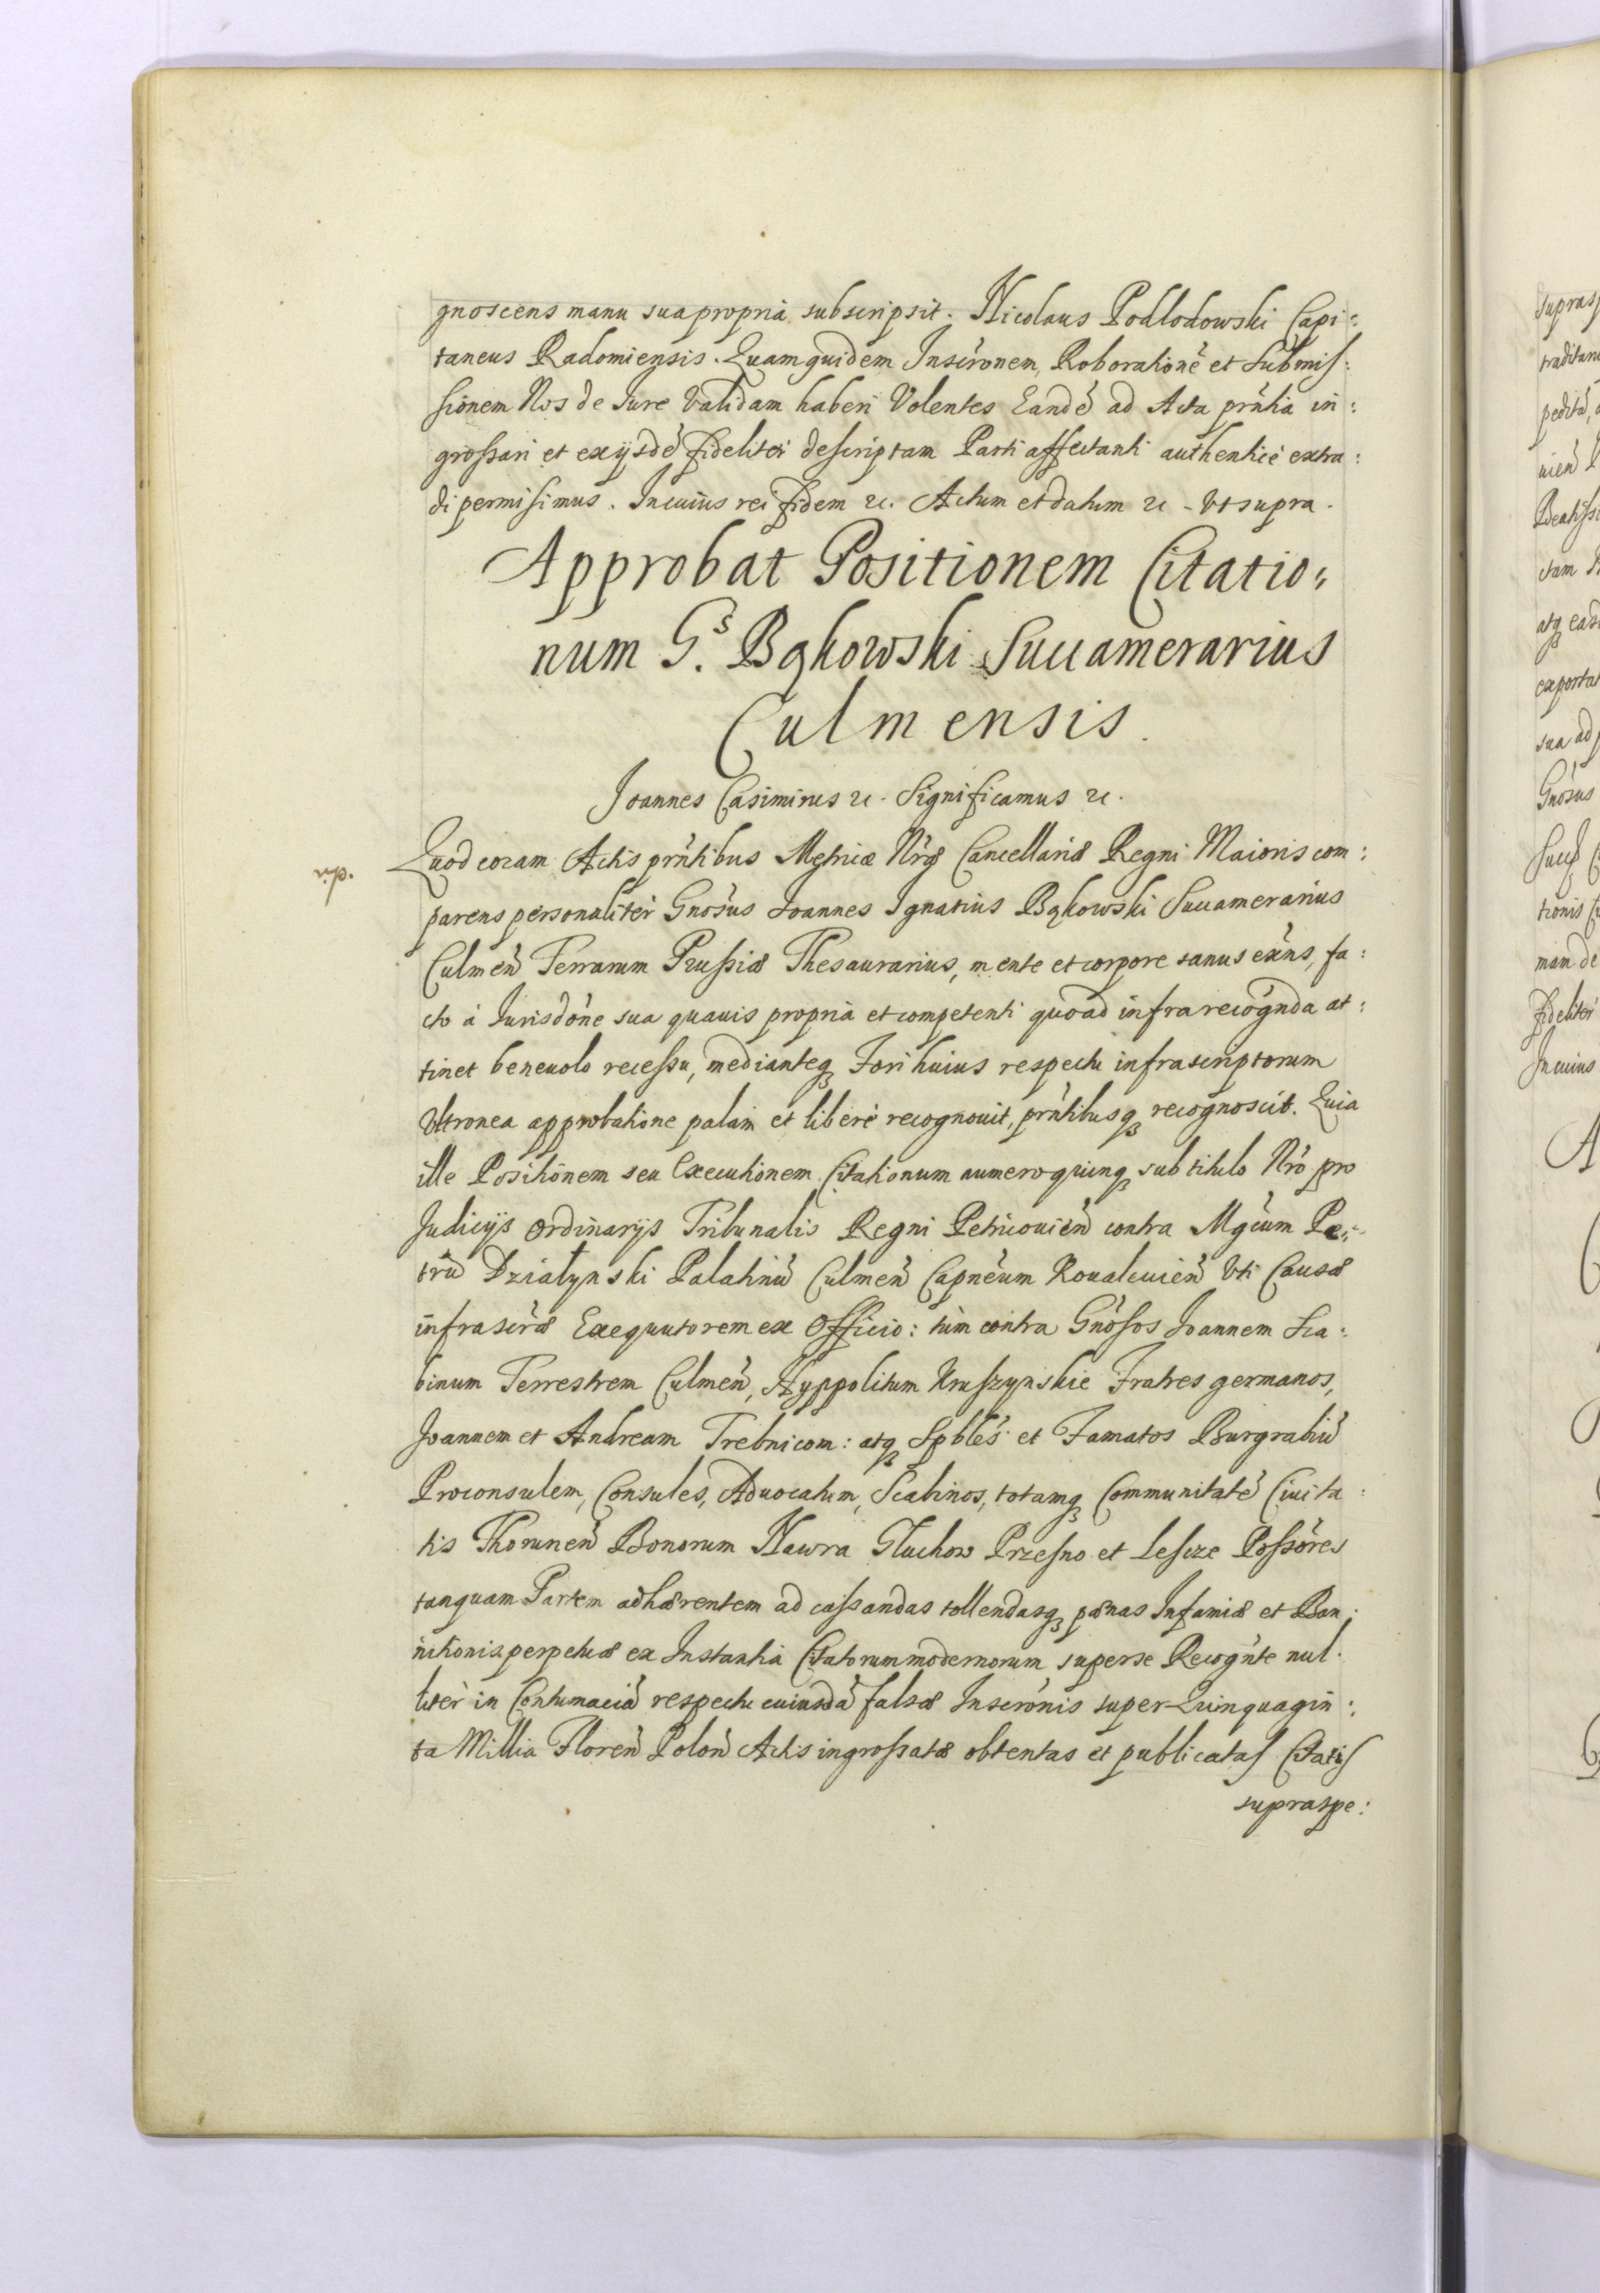 gnoscens manu sua propria subscripsit. Nicolaus Podlodowski Capi:
taneus Radomiensis. Quam quidem Inscrōnem, Roborationē et submis:
sionem Nos de Iure Validam haberi Volentes Eandē ad Acta prńtia in:
grossari et exijsdē fideliter descriptam Parti affectanti authentice extra:
di permisimus. In cuius rei fidem &c. Actum et datum &c - Vt supra.
Approbat Positionem Citatio:
num G.s Bąkowski Succamerarius
Culmensis.
Joannes Casimirus &c. Significamus &c.
Quod coram Actis prńtibus Metricæ Nrǽ Cancellariæ Regni Maioris com:
parens personaliter Gnosus Joannes Ignatius Bąkowski Succamerarius
Culmeń Terrarum Prussiæ Thesaurarius, mente et corpore sanus exńs, fa:
cto á Jurisdōne sua quauis propria et competenti quoad infra recognda at:
tinet beneuolo recessu, medianteq₃ Fori huius respectu infrascriptorum
Vltronea approbatione palam et libere recognouit, prńtibusq₃ recognoscit. Quia
ille Positionem seu Executionem Citationum numero quinq₃ sub titulo Nrō pro
Judicijs ordinarijs Tribunalis Regni Petricouień contra Mgcum Pe:
trū Działynski Palatinū Culmeń Capnēum Kovalevień Vti Causæ
infrascrǽ Exequutorem ex Officio: tùm contra Gnōsos Joannem Sca:
binum Terrestrem Culmeń, Hyppolitum Kruszynskie Fratres germanos,
Joannem et Andream Trebnicom: atq₃ Spbles et Famatos Burgrabiū
Proconsulem, Consules, Aduocatum, Scabinos, totamq₃ Communitatē Ciuita:
tis Thoruneń Bonorum Nawra Gluchow Przesno et Lescze Possōres
tanquam Partem adhærentem ad cassandas tollendasq₃ pœnas Infamiæ et Ban:
nitionis perpetuæ ex Instantia Citatorum modernorum super se Recognte nul:
liter in Contumaciā respectu cuiusdā falsæ Inscrōnis super Quinquagin:
ta Millia Floreń Poloń Actis ingrossatæ obtentas et publicatas Citatis
supraspe: